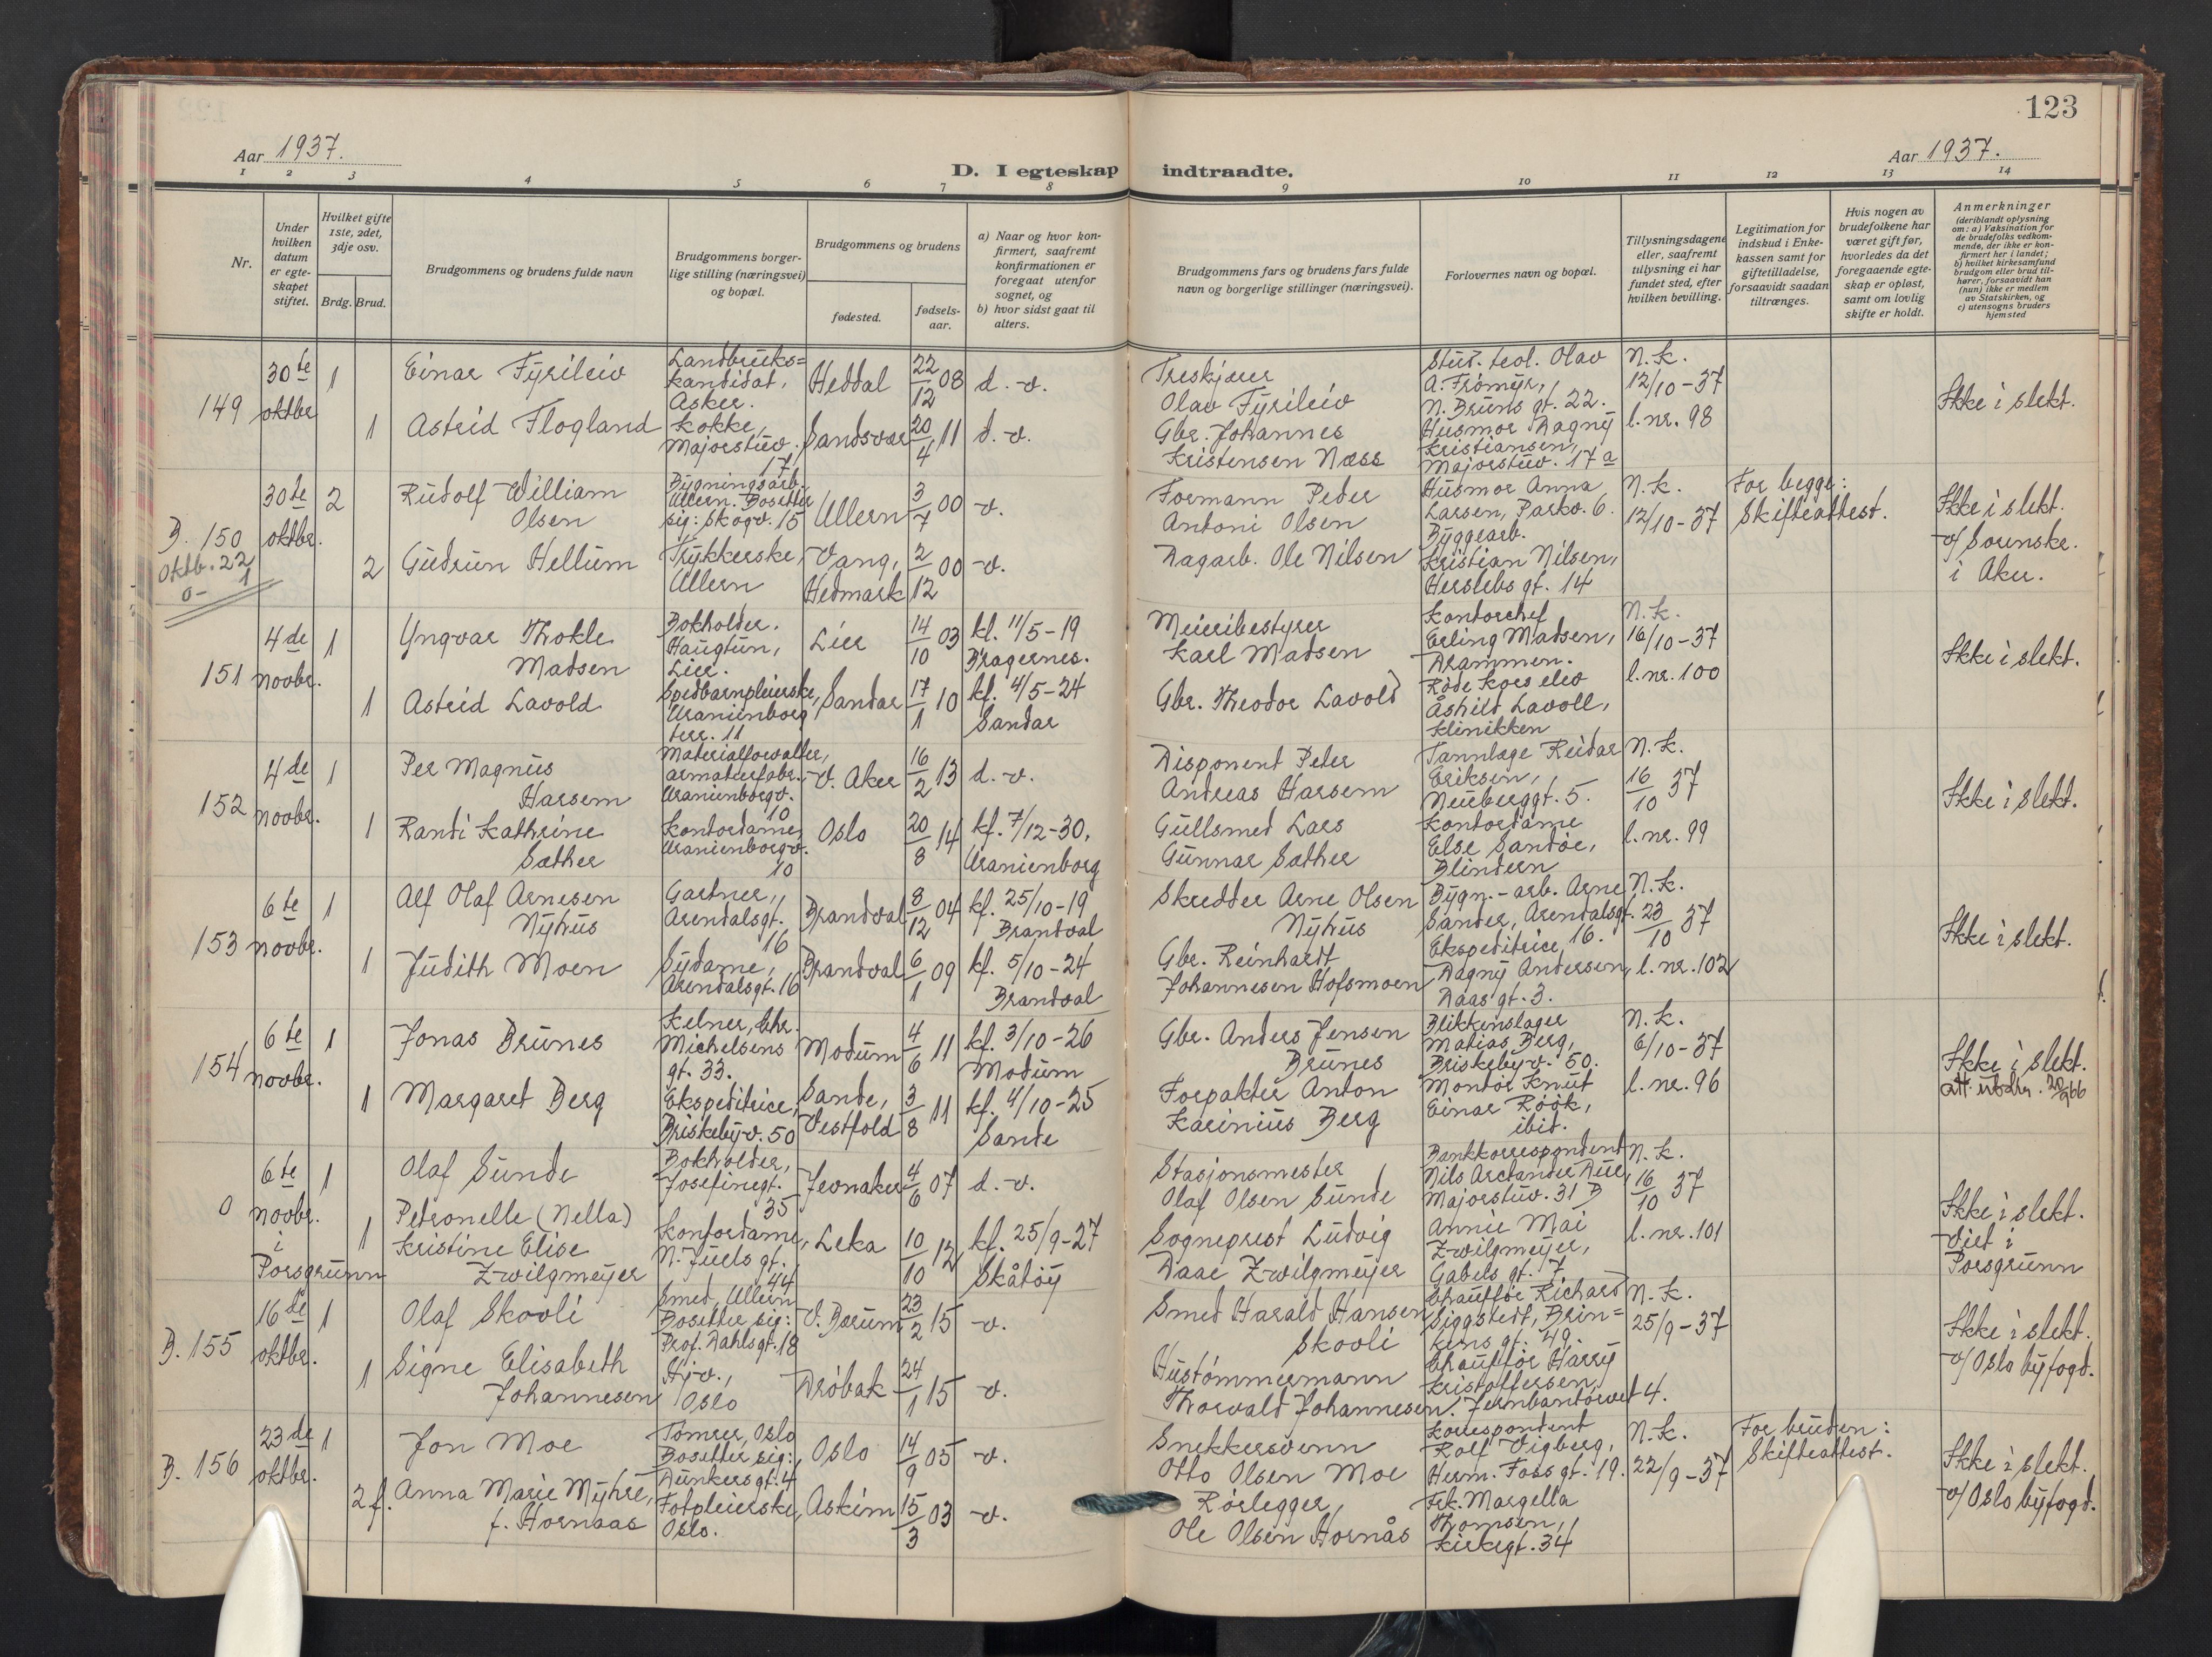 123
Aar 1937.
Aar 1937.
D. I egteskap indtraadte.
1 2 3 4 5 6 7 8 9 10 11 12 13 14
Nr.
Under hvilken datum er egteskapet stiftet.
Hvilket gifte 1ste, 2det, 3dje osv.
Brdg. Brud.
Brudgommens og brudens fulde navn
Brudgommens borgerlige stilling (næringsvei) og bopæl.
Brudgommens og brudens
fødested.
fødselsaar.
a) Naar og hvor konfirmert, saafremt konfirmationen er foregaat utenfor sognet, og
b) hvor sidst gaat til alters.
Brudgommens fars og brudens fars fulde navn og borgerlige stillinger (næringsvei).
Forlovernes navn og bopæl.
Tillysningsdagene eller, saafremt tillysning ei har fundet sted, efter hvilken bevilling.
Legitimation for indskud i Enkekassen samt for giftetilladelse, forsaavidt saadan tiltrænges.
Hvis nogen av brudefolkene har været gift før, hvorledes da det foregaaende egteskap er opløst, samt om lovlig skifte er holdt.
Anmerkninger
(deriblandt oplysning om: a) Vaksination for de brudefolks vedkommende, der ikke er konfirmert her i landet;
b) hvilket kirkesamfund brudgom eller brud tilhører, forsaavidt han (hun) ikke er medlem av Statskirken, og
c) utensogns bruders hjemsted
149
30te oktbr
1
Einar Fyrileiv
Landbruks=
kandidat,
Asker.
Heddal
22/12 08
d. - v.
Treskjærer
Olav Fyrileiv
Stud. teol. Olav
A. Frömyr,
N. Bruns gt. 22.
N.k.
12/10-37
l.nr. 98
Ikke i slekt.
1
Astrid Flogland
Kokke,
Majorstuv.
17
Sandsvær
20/4 11
d. - v.
Gbr. Johannes
Kristensen Næss
Husmor Dagny
Kristiansen,
Majorstuv. 17 a
B. 150
Oktb. 22
1
0-
30te oktbr.
2
Rudolf William
Olsen
Bygningsarb.
Ullern. Bosetter
sig: Skogv. 15
Ullern
3/7 00
-v.
Formann Peder
Antoni Olsen
Husmor Anna
Larsen, Parkv. 6.
N.k.
12/10-37
For begge:
Skifteattest.
Ikke i slekt.
v/ Sorenskr.
i Aker.
2
Gudrun Hellum
Trykkerske,
Ullern
Vang,
Hedmark
2/12 00
-v.
Dagarb. Ole Nilsen
Byggearb.
Kristian Nilsen,
Herslebs gt. 14
151
4de novbr.
1
Yngvar Thokle
Madsen
Bokholder.
Haugtun,
Lier.
Lier
14/10 03
kf. 11/5-19
Bragernes.
Meieribestyrer
Karl Madsen
Kontorchef
Erling Madsen,
Drammen.
N.k.
16/10-37
l.nr. 100
Ikke i slekt.
1
Astrid Lavold
Spedbarnpleierske,
Uranienborg
terr. 11
Sandar
17/1 10
kf. 4/5-24
Sandar
Gbr. Theodor Lavold
Röde Kors elev
Åshild Lavoll,
Klinikken
152
4de novbr.
1
Per Magnus
Harsem
Materialforvalter,
armaturfabr.
Uranienborgv.
10
V. Aker
16/2 13
d. - v.
Disponent Peter
Andreas Harsem
Tannlæge Reidar
Eriksen,
Neuberggt. 5.
N.k.
16/10 37
l.nr. 99
Ikke i slekt.
1
Randi Kathrine
Sæther
Kontordame,
Uranienborgv.
10
Oslo
20/8 14
kf. 7/12-30,
Uranienborg
Gullsmed Lars
Gunnar Sæther
Kontordame
Else Sandöe,
Blindern
153
6te novbr.
1
Alf Olaf Arnesen
Nyhus
Gartner,
Arendalsgt.
16
Brandval
8/12 04
kf. 25/10-19
Brandval
Skredder Arne Olsen
Nyhus
Bygn.-arb. Arne
Sander, Arendalsgt.
16.
N.k.
23/10 37
l.nr. 102
Ikke i slekt.
1
Judith Moen
Sydame,
Arendalsgt. 16
Brandval
6/1 09
kf. 5/10-24
Brandval
Gbr. Reinhardt
Johannesen Hofsmoen
Ekspeditrice
Dagny Andersen,
Daas gt. 3.
154
6te novbr.
1
Jonas Brunes
Kelner, Chr.
Michelsens
gt. 33.
Modum
4/6 11
kf. 3/10-26
Modum
Gbr. Anders Jensen
Brunes
Blikkenslager
Matias Berg,
Briskebyv. 50.
N.k.
6/10-37
l.nr. 96
Ikke i slekt.
1
Margaret Berg
Ekspeditrice,
Briskebyv. 50
Sande,
Vestfold
3/8 11
kf. 4/10-25
Sande
Forpakter Anton
Karinius Berg
Montör Knut
Einar Röök,
ibid.
0
6te novbr.
i
Porsgrunn
1
Olaf Sunde
Bokholder,
Josefinegt.
35
Jevnaker
4/6 07
d. - v.
Stasjonsmester
Olaf Olsen Sunde
Bankkorrespondent
Nils Arctander Due,
Majorstuv. 31 B
N.k.
16/10 37
l.nr. 101
Ikke i slekt.
Viet i
Porsgrunn
1
Petronelle (Nella)
Kristine Elise
Zwilgmeyer
Kontordame,
N. Juels gt.
44
Leka
10/10 12
kf. 25/9-27
Skåtöy
Sogneprest Ludvig
Daae Zwilgmeyer
Annie Mai
Zwilgmeyer,
Gabels gt. 7
B. 155
16de oktbr.
1
Olaf Skovli
Smed, Ullern
Bosetter sig:
Prof. Dahlsgt. 18
V. Bærum
23/2 15
-v.
Smed Harald Hansen
Skovli
Chaufför Richard
Siggstedt, Brin=
kens gt. 49.
N.k.
25/9-37
Ikke i slekt.
v/ Oslo byfogd.
1
Signe Elisabeth
Johannesen
Hjv.,
Oslo
Dröbak
24/1 15
-v.
Hustömmermann
Thorvald Johannesen.
Chaufför Harry
Kristoffersen,
Jernbanetorvet 4.
B. 156
23de oktbr.
1
Jon Moe
Tömrer, Oslo
Bosetter sig:
Dunkersgt. 4
Oslo
14/9 05
-v.
Snekkersvenn
Otto Olsen Moe
Korrespondent
Rolf Vigberg,
Herm. Foss gt. 19.
N.k.
22/9-37
For bruden:
Skifteattest.
Ikke i slekt.
v/ Oslo byfogd.
2 f.
Anna Marie Myhre,
f. Hornaas
Fotpleierske,
Oslo.
Askim
15/3 03
-v.
Rörlegger,
Ole Olsen Hornås
Frk. Margella
Thomsen,
Kirkegt. 34